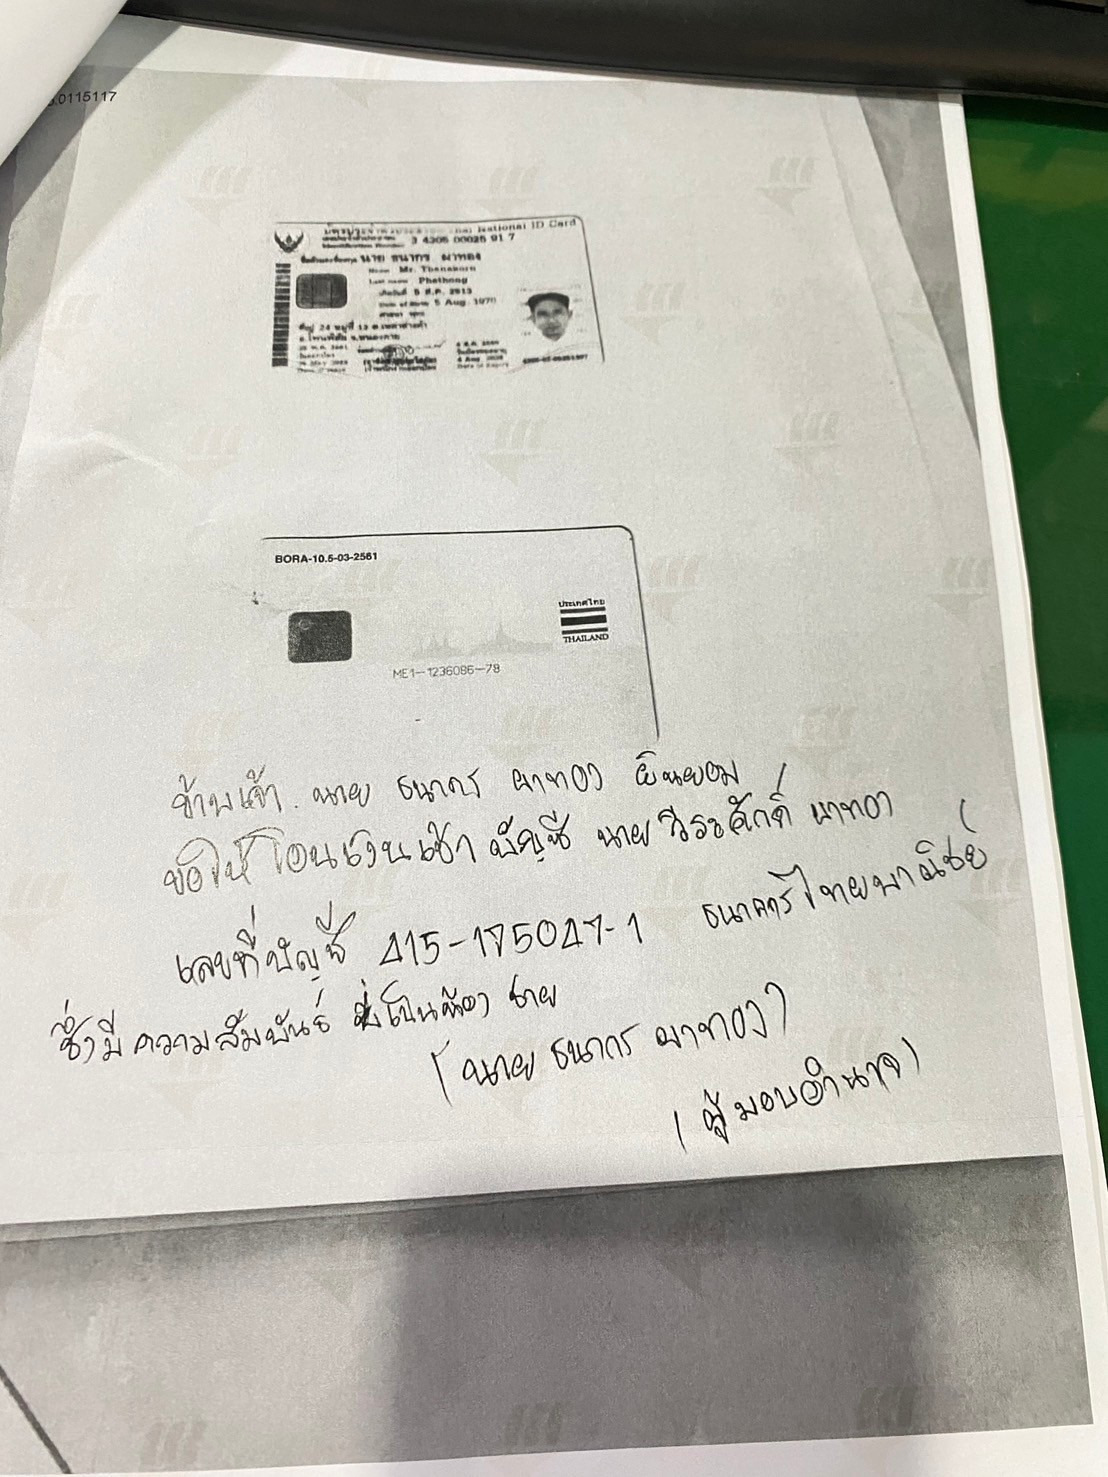 .0115117
National ID Card
3 4305 00025 91 7
ชื่อตัวและชื่อสกุล นาย ธนากร ผาทอง
Name Mr. Thanakorn
Last name Phathong
เกิดวันที่ 5 ส.ค. 2513
Date of Birth 5 Aug. 1970
ที่อยู่ 24 หมู่ที่ 13
อ.โพนพิสัย จ.หนองคาย
BORA-10.5-03-2561
ประเทศไทย
THAILAND
ME1-1236086-78
ข้าพเจ้า นาย ธนากร ผาทอง ยินยอม
ขอให้โอนเงินเข้า บัญชี นาย วีระศักดิ์ ผาทอง
เลขที่บัญชี 415-195047-1 ธนาคารไทยพาณิชย์
ซึ่งมีความสัมพันธ์ เป็นน้อง ชาย
(นาย ธนากร ผาทอง)
(ผู้มอบอำนาจ)